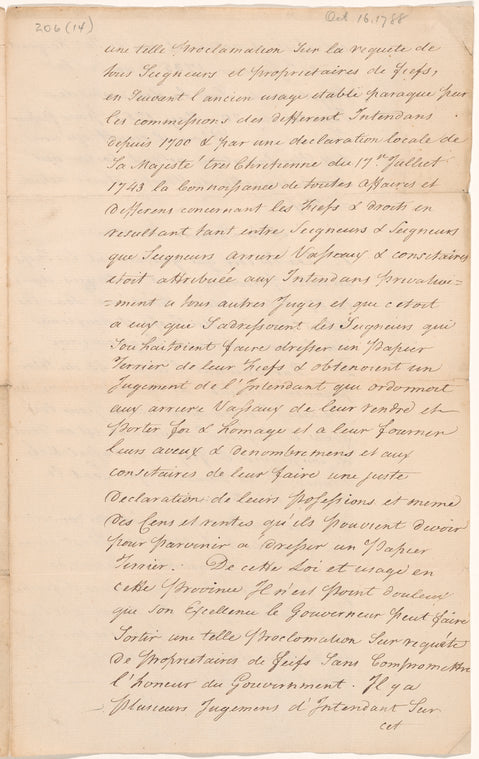 206 (14)
Oct 16, 1788
une telle Proclamation Sur la requete de
tous Seigneurs et proprietaires de fiefs,
en Suivant l'ancien usage etabli paraque par
les commissions des different Intendans
depuis 1700 & par une declaration locale de
Sa Majesté tres Chretienne du 17me Juillet
1743 la Connoissance de toutes affaires et
differens concernant les Fiefs & droits en
resultant tant entre Seigneurs & Seigneurs
que Seigneurs arriere Vasseaux & consitaires
etoit attribuée aux Intendans privative=
=ment a tous autres Juges et que c etoit
a eux que S'adressoient les Seigneurs qui
Souhaitoient faire dresser un Papier
Terrier de leur Fiefs & obtenoient un
Jugement de l'Intendant qui ordonnoit
aux arriere Vassaux de leur rendre et
Porter foi & homage et a leur fournir
leurs aveux & denombremens et aux
consitaires de leur faire une juste
declaration de leurs Possessions et meme
des Cens et rentes qu'ils pouvient devoir
pour parvenir a dresser un Papier
Terrier. De cette Loi et usage en
cette Province Il n'est Point douteux
que Son Excellence le Gouverneur peut faire
Sortir une telle Proclomation Sur requete
de Proprietaires de feifs Sans Compromettre
l'honeur du Gouvernment. Il y a
Plusieurs Jugemens d'Intendant Sur
cet